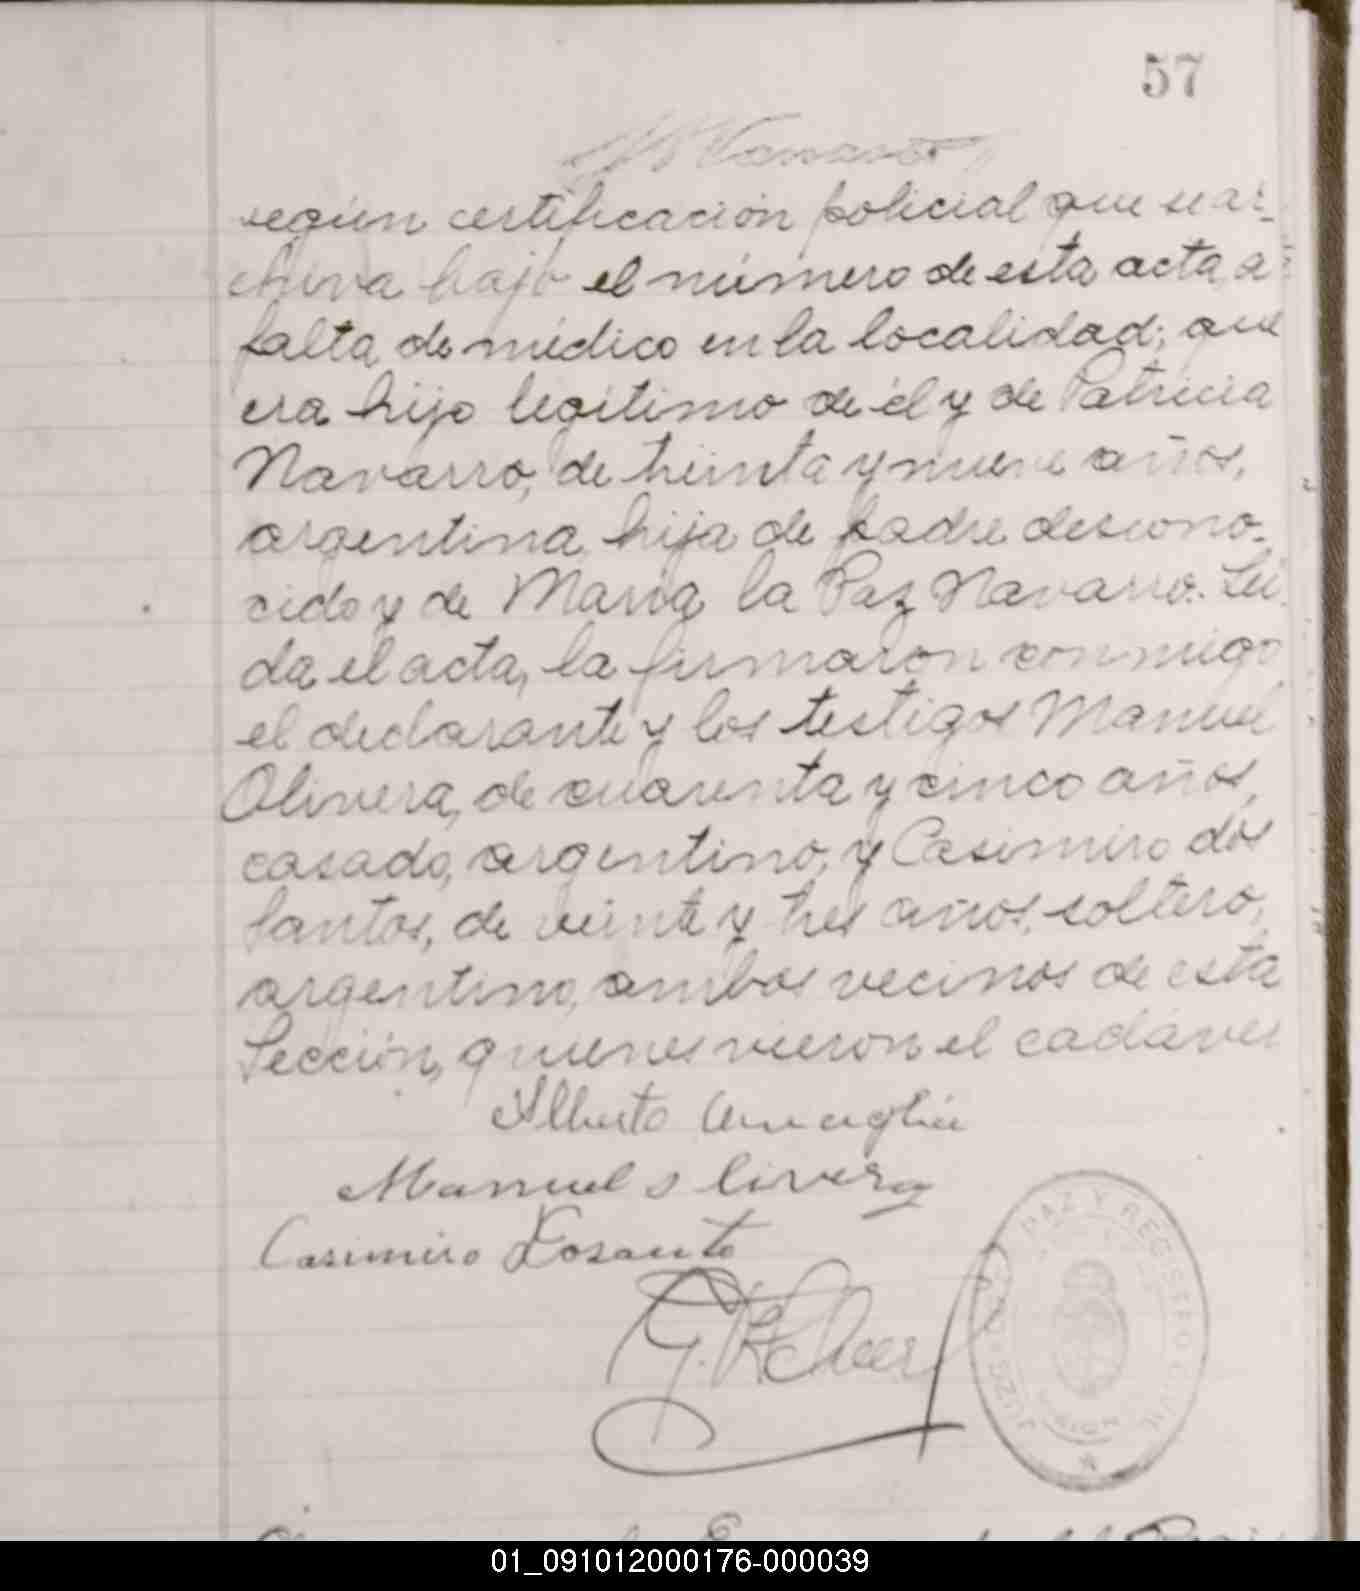 57
según certificación policial que se ar-
chiva bajo el número de esta acta, a
falta de médico en la localidad; que
era hijo legítimo de él y de Patricia
Navarro, de treinta y nueve años,
argentina, hija de padre descono-
cido y de María la Paz Navarro. Leí-
da el acta, la firmaron conmigo
el declarante y los testigos Manuel
Olivera, de cuarenta y cinco años,
casado, argentino, y Casimiro dos
Santos, de veinte y tres años, soltero,
argentino, ambos vecinos de esta
Sección, quienes vieron el cadáver
Alberto
Manuel Olivera
Casimiro Dosanto
JUZGADO DE PAZ Y REGISTRO CIVIL
01_091012000176-000039